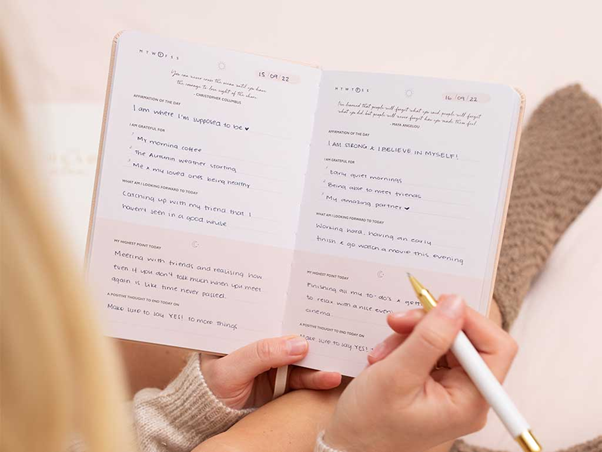 M T W T F S S
15 / 09 / 22
You can never cross the ocean until you have
the courage to lose sight of the shore.
- CHRISTOPHER COLUMBUS
AFFIRMATION OF THE DAY
I am where I'm supposed to be ♥
I AM GRATEFUL FOR
My morning coffee
The Autumn weather starting
Me & my loved ones being healthy
WHAT AM I LOOKING FORWARD TO TODAY
Catching up with my friend that I
haven't seen in a good while
MY HIGHEST POINT TODAY
Meeting with friends and realising how
even if you don't talk much when you meet
again is like time never passed
A POSITIVE THOUGHT TO END TODAY ON
Make sure to say YES! to more things
M T W T F S S
16 / 09 / 22
I've learned that people will forget what you said, people will forget
what you did but people will never forget how you made them feel.
- MAYA ANGELOU
AFFIRMATION OF THE DAY
I AM STRONG & I BELIEVE IN MYSELF!
I AM GRATEFUL FOR
Early quiet mornings
Being able to meet friends
My amazing partner ♥
WHAT AM I LOOKING FORWARD TO TODAY
Working hard, having an early
finish & go watch a movie this evening
MY HIGHEST POINT TODAY
Finishing all my to-do's &
to relax with a nice
cinema
A POSITIVE THOUGHT TO END TODAY ON
Make sure to say YES!